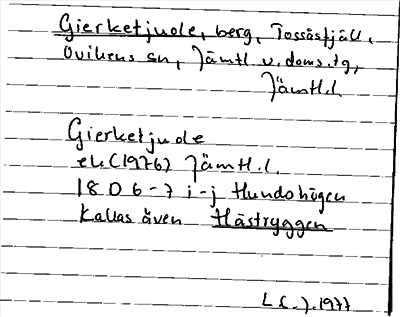 Gierketjuole, berg, Tossåsfjäll,
Ovikens sn, Jämtl. v. doms.tg,
Jämtl.l.
Gierketjuole
ek (1976) Jämtl.l.
18 D 6-7 i-j Hundshögen
Kallas även Hästryggen
1977